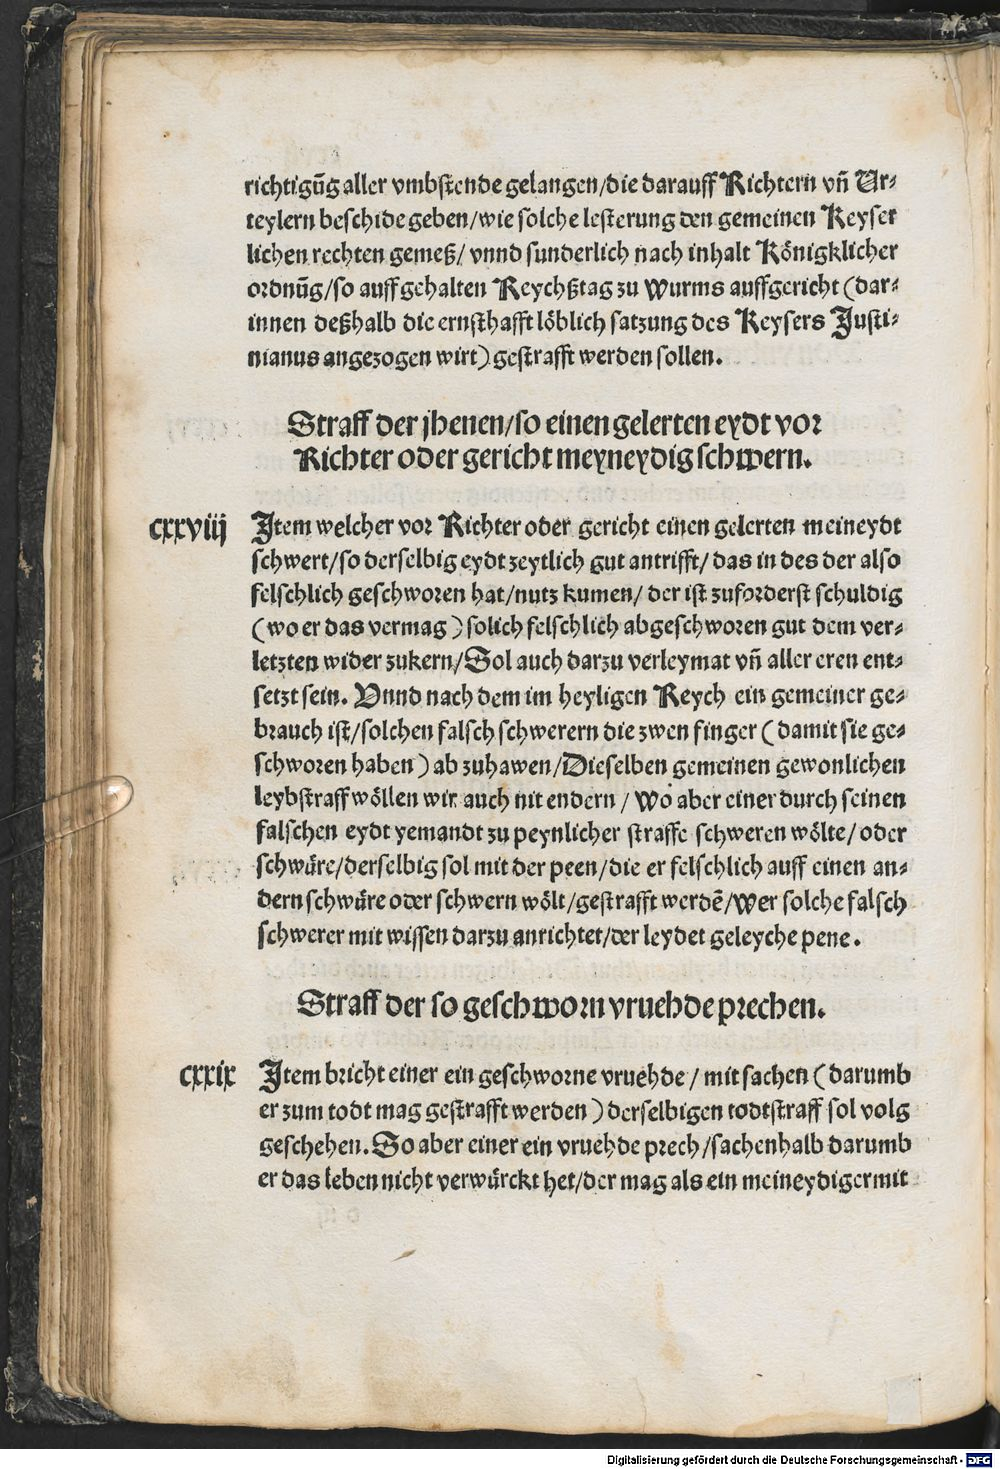 richtigūg aller vmbstende gelangen/die darauff Richtern vn̄ Ur⸗
teylern beschide geben/wie solche lesterung den gemeinen Keyser
lichen rechten gemeß/ vnnd sunderlich nach inhalt Königklicher
ordnūg/so auff gehalten Reychßtag zu Wurms auffgericht (dar⸗
innen deßhalb die ernsthafft löblich satzung des Keysers Justi⸗
nianus angezogen wirt) gestrafft werden sollen.
Straff der jhenen/so einen gelerten eydt vor
Richter oder gericht meyneydig schwern.
cxxviij Item welcher vor Richter oder gericht einen gelerten meineydt
schwert/so derselbig eydt zeytlich gut antrifft/ das in des der also
felschlich geschworen hat/nutz kumen/ der ist zuforderst schuldig
(wo er das vermag) solich felschlich abgeschworen gut dem ver⸗
letzten wider zukern/Sol auch darzu verleymat vn̄ aller eren ent⸗
setzt sein. Vnnd nach dem im heyligen Reych ein gemeiner ge⸗
brauch ist/solchen falsch schwerern die zwen finger (damit sie ge⸗
schworen haben) ab zuhawen/Dieselben gemeinen gewonlichen
leybstraff wöllen wir auch nit endern / Wo aber einer durch seinen
falschen eydt yemandt zu peynlicher straffe schweren wölte/ oder
schwüre/derselbig sol mit der peen/die er felschlich auff einen an⸗
dern schwüre oder schwern wölt/gestrafft werdē/Wer solche falsch
schwerer mit wissen darzu anrichtet/der leydet geleyche pene.
Straff der so geschworn vruehde prechen.
cxxix Item bricht einer ein geschworne vruehde / mit sachen (darumb
er zum todt mag gestrafft werden) derselbigen todtstraff sol volg
geschehen. So aber einer ein vruehde prech/sachenhalb darumb
er das leben nicht verwürckt het/der mag als ein meineydiger mit
Digitalisierung gefördert durch die Deutsche Forschungsgemeinschaft - DFG